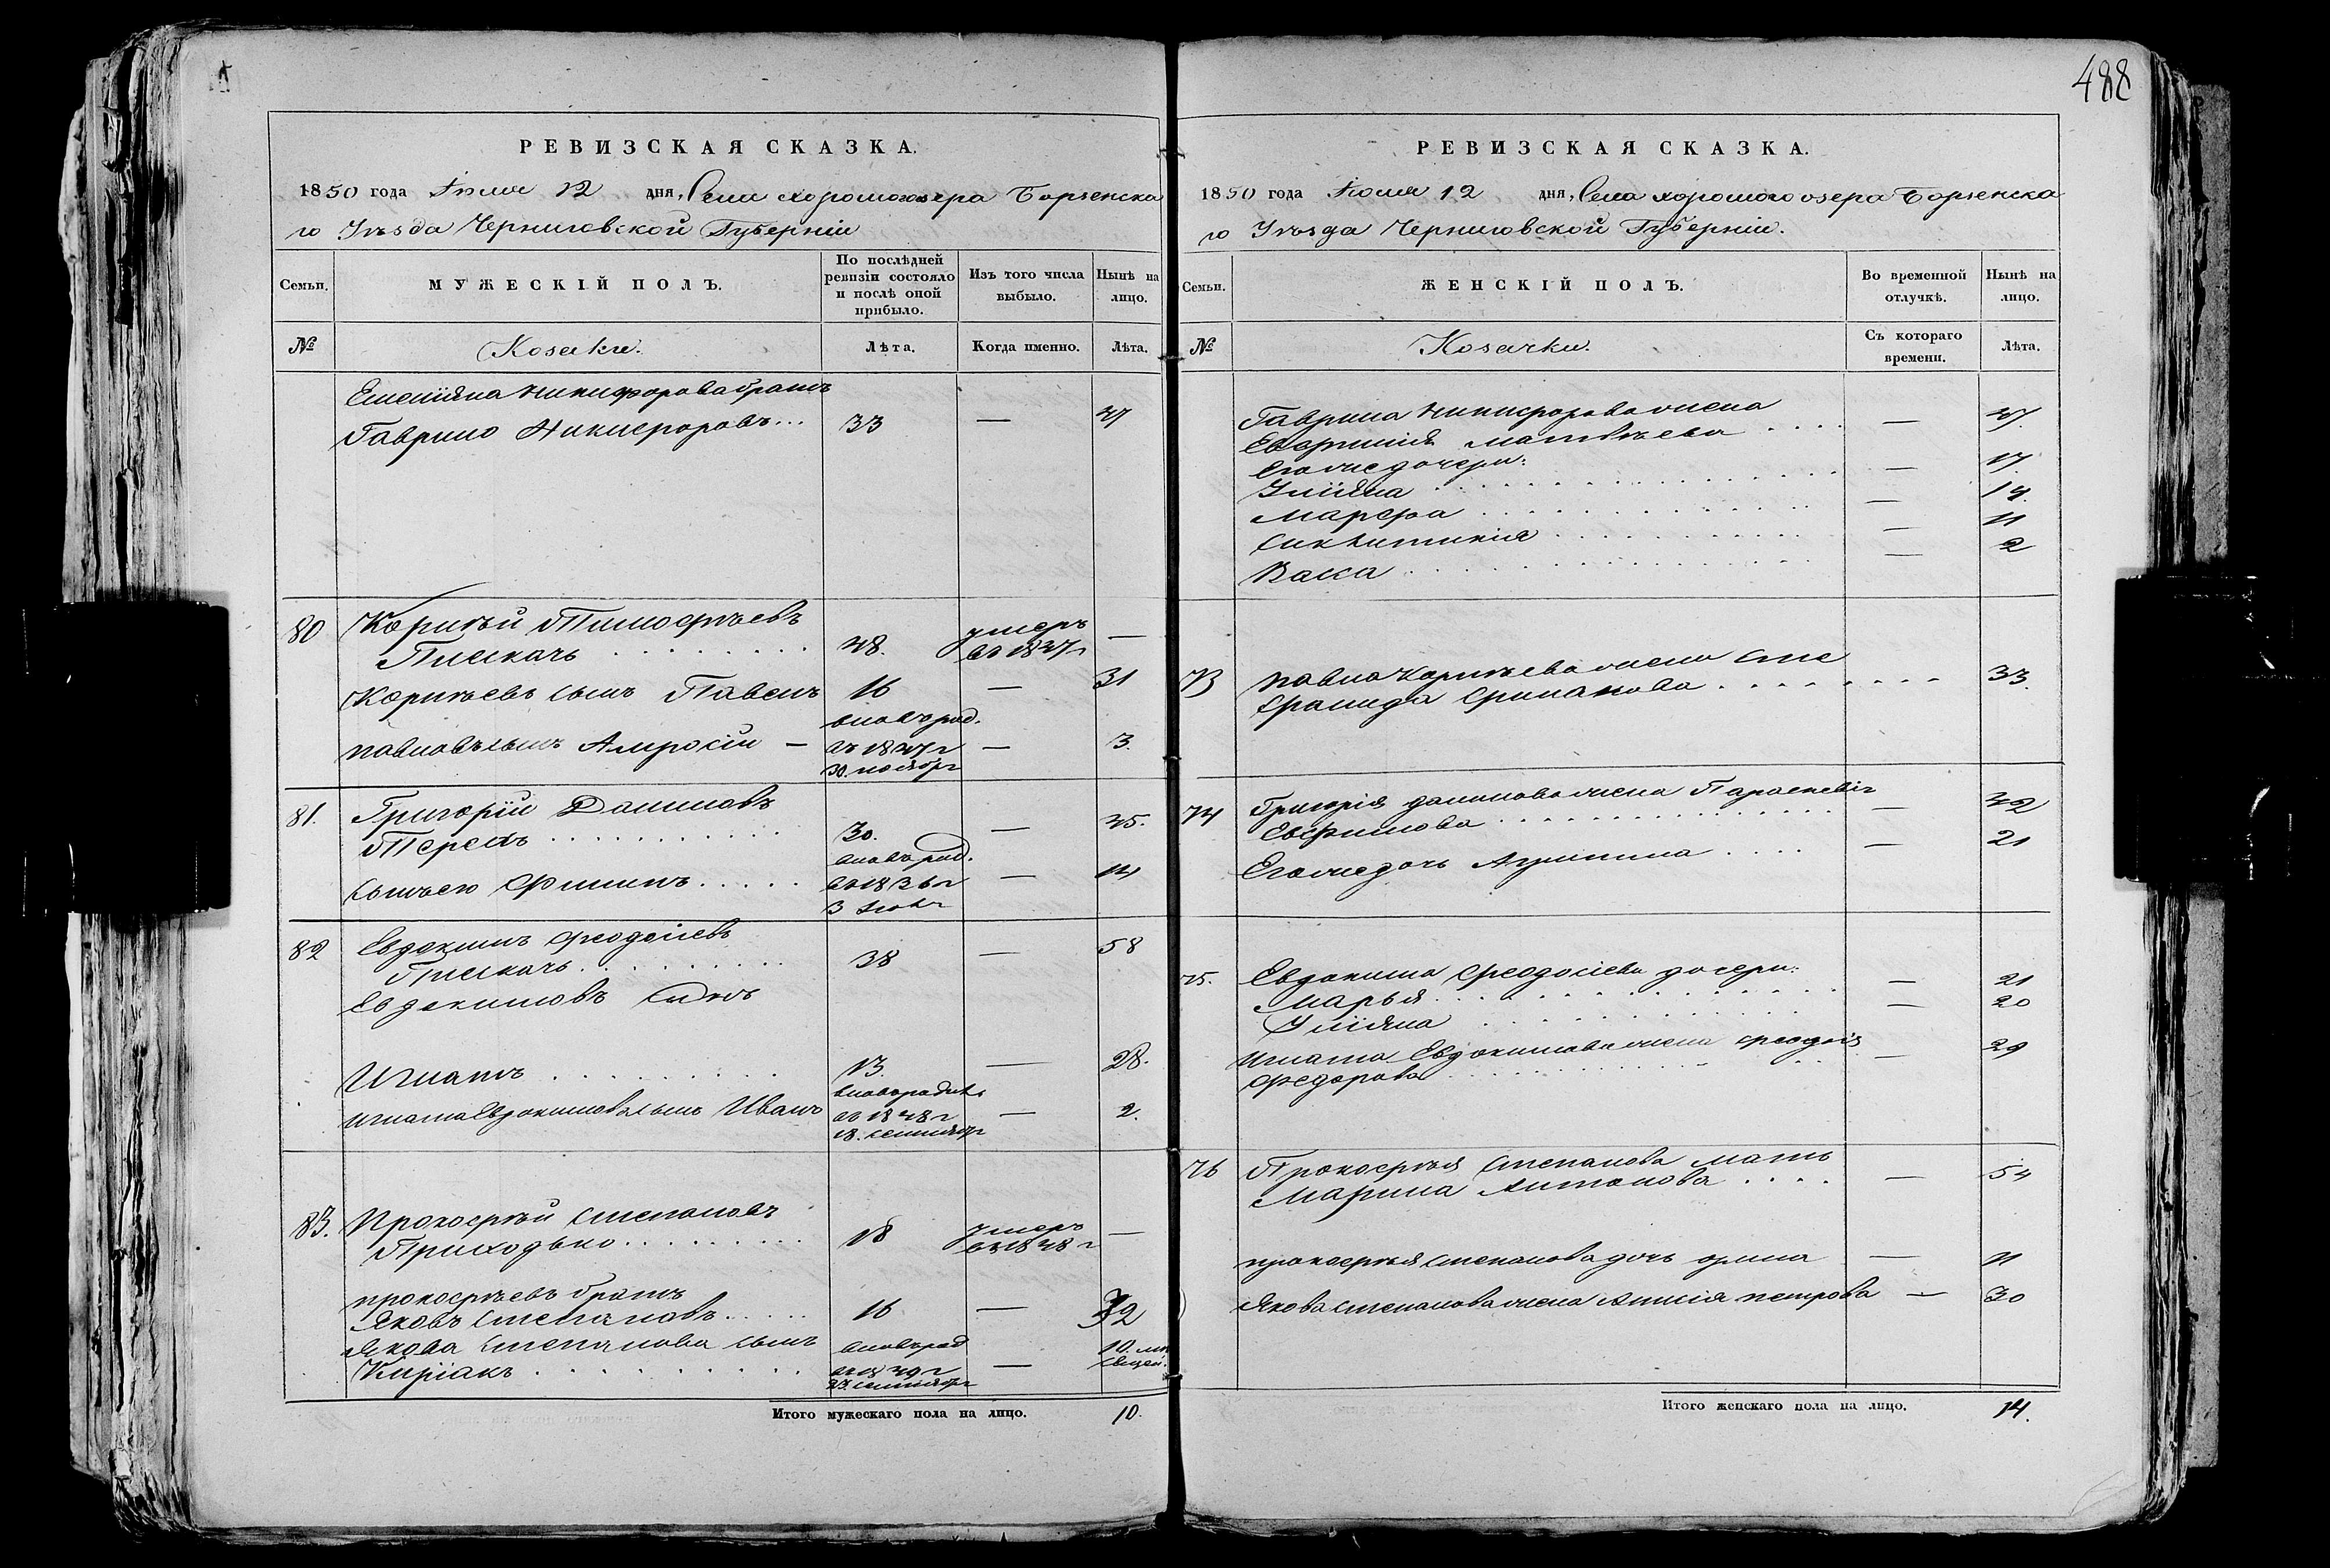 488
РЕВИЗСКАЯ СКАЗКА.
1850 года Іюля 12 дня, Села хорошогоозера Борзенска
го Уѣзда Черниговской Губерніи
Семьи. МУЖЕСКІЙ ПОЛЪ. По послѣдней ревизіи состояло и послѣ оной прибыло. Изъ того числа выбыло. Нынѣ на лицо.
№ Козаки. Лѣта. Когда именно. Лѣта.
Емелiяна Никифорова братъ
Гаврило Никифоровъ... 33 — 47
80 Корнѣй Тимофѣевъ
Плискачъ 48. умеръ въ 1847г —
Корнѣевъ сынъ Павелъ 16 — 31
вновь род.
Павловъ сынъ Амросій — въ 1847г — 3.
30 ноября
81. Григорій Даниловъ
Терехъ 30. — 45.
вновь род.
Сынъ его Филипъ въ 1836г — 14
3 Іюня
82 Евдокимъ Феодосіевъ
Плискачъ 38 — 58
Евдокимовъ сынъ
Игнатъ 13. — 28.
вновь родив
Игната Евдокимова сынъ Иванъ въ 1848г — 2.
18. сентября
83. Прокофѣй Степановъ
Приходько 18 умеръ въ 1848г —
прокофѣевъ братъ
Яковъ Степановъ 16 — 32
Якова Степанова сынъ вновь род 10. мѣ
Киріакъ въ 1849г — сяцей.
23. сентября
Итого мужескаго пола на лицо. 10.
РЕВИЗСКАЯ СКАЗКА.
1850 года Іюля 12 дня, Села хорошого озера Борзенска
го Уѣзда Черниговской Губерніи.
Семьи. ЖЕНСКІЙ ПОЛЪ. Во временной отлучкѣ. Нынѣ на лицо.
№ Козачки. Съ котораго времени. Лѣта.
Гаврила Никифорова жена
Евфимія Матвѣева — 47.
Его же дочери:
Уліяна — 17.
Марфа — 14.
Сикл
итикія — 11
Васса — 2
73 Павла Корнѣева жена Сте
фанида Филипова 33.
74 Григорія данилова жена Параскевія
Евфимова — 42
Его же дочь Агрипина — 21
75. Евдокима Феодосіева дочери:
Марья — 21
Уліяна — 20
Игната Евдокимова жена Феодосія
Федорова — 29
76 Прокофѣя Степанова мать
Марина Антонова — 54
прокофѣя Степанова дочь — 11
Якова Степанова жена Анисія петрова — 30
Итого женскаго пола на лицо. 14.